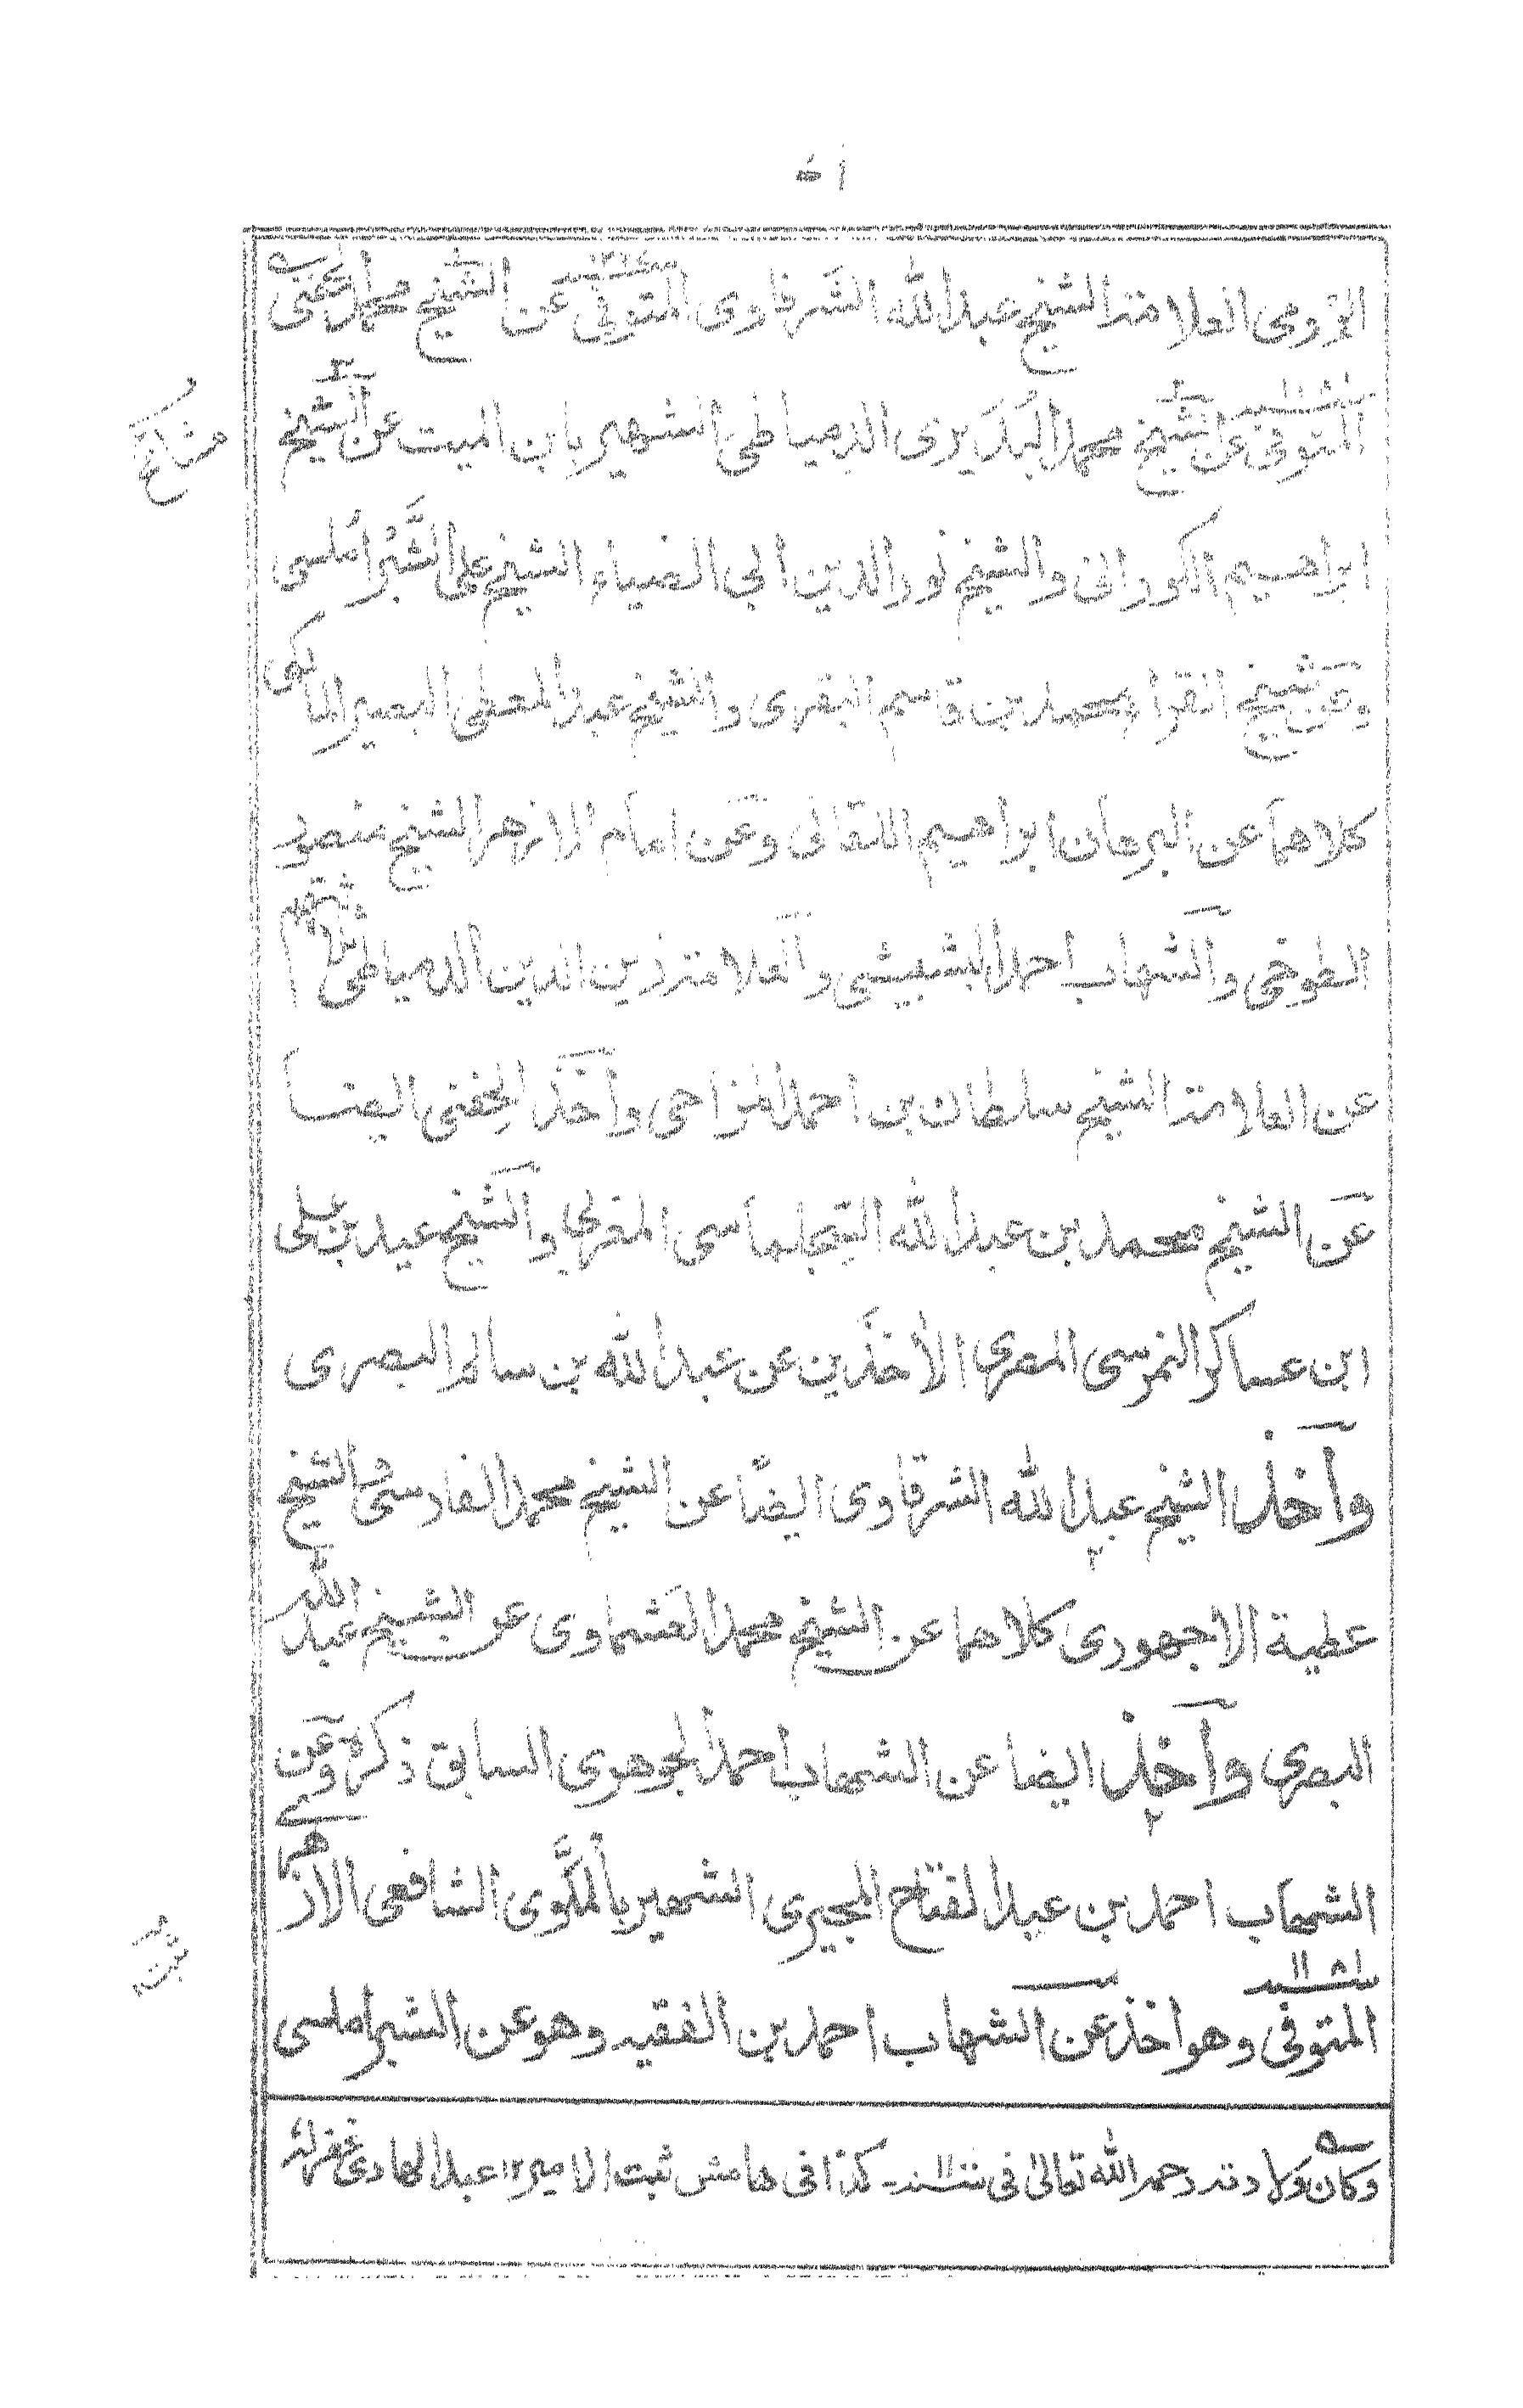 المخزومى العلامة الشيخ عبد الله الشرقاوى المتوفى عن الشيخ محمد الحفنى
المتوفى عن الشيخ محمد البديرى الدمياطى الشهير بابن الميت عن الشيخ
مشائخ
ابراهيم الكورانى والشيخ نور الدين ابى الضياء الشيخ على الشبراملسى
وعن شيخ القراء محمد بن قاسم البقرى والشيخ عبد المعطى البصير المالكى
كلاهما عن البرهان ابراهيم اللقانى وعن امام الازهر الشيخ منصور
الطوخى والشهاب احمد البشبيشى والعلامة زين الدين الدمياطى
عن العلامة الشيخ سلطان بن احمد المزاحى واخذ الحفنى ايضا
عن الشيخ محمد بن عبد الله السجلماسى المغربى والشيخ عيد بن على
ابن عساكر النمرسى المصرى الأخذين عن عبد الله بن سالم البصرى
وأخذ الشيخ عبد الله الشرقاوى ايضا عن الشيخ محمد الفارسى والشيخ
عطية الاجهورى كلاهما عن الشيخ محمد العشماوى عن الشيخ عبد الله
البصرى وأخذ ايضا عن الشهاب احمد الجوهرى السابق ذكره وعن
الشهاب احمد بن عبد الفتاح المجيرى الشهير بالملوى الشافعى الازهرى
المتوفى وهو اخذ عن الشهاب احمد بن الفقيه وهو عن الشبراملسى
ثبت
وكان ولادته رحمه الله تعالى فى كذا فى هامش ثبت الامير ١٢ عبد الهادى غفر له